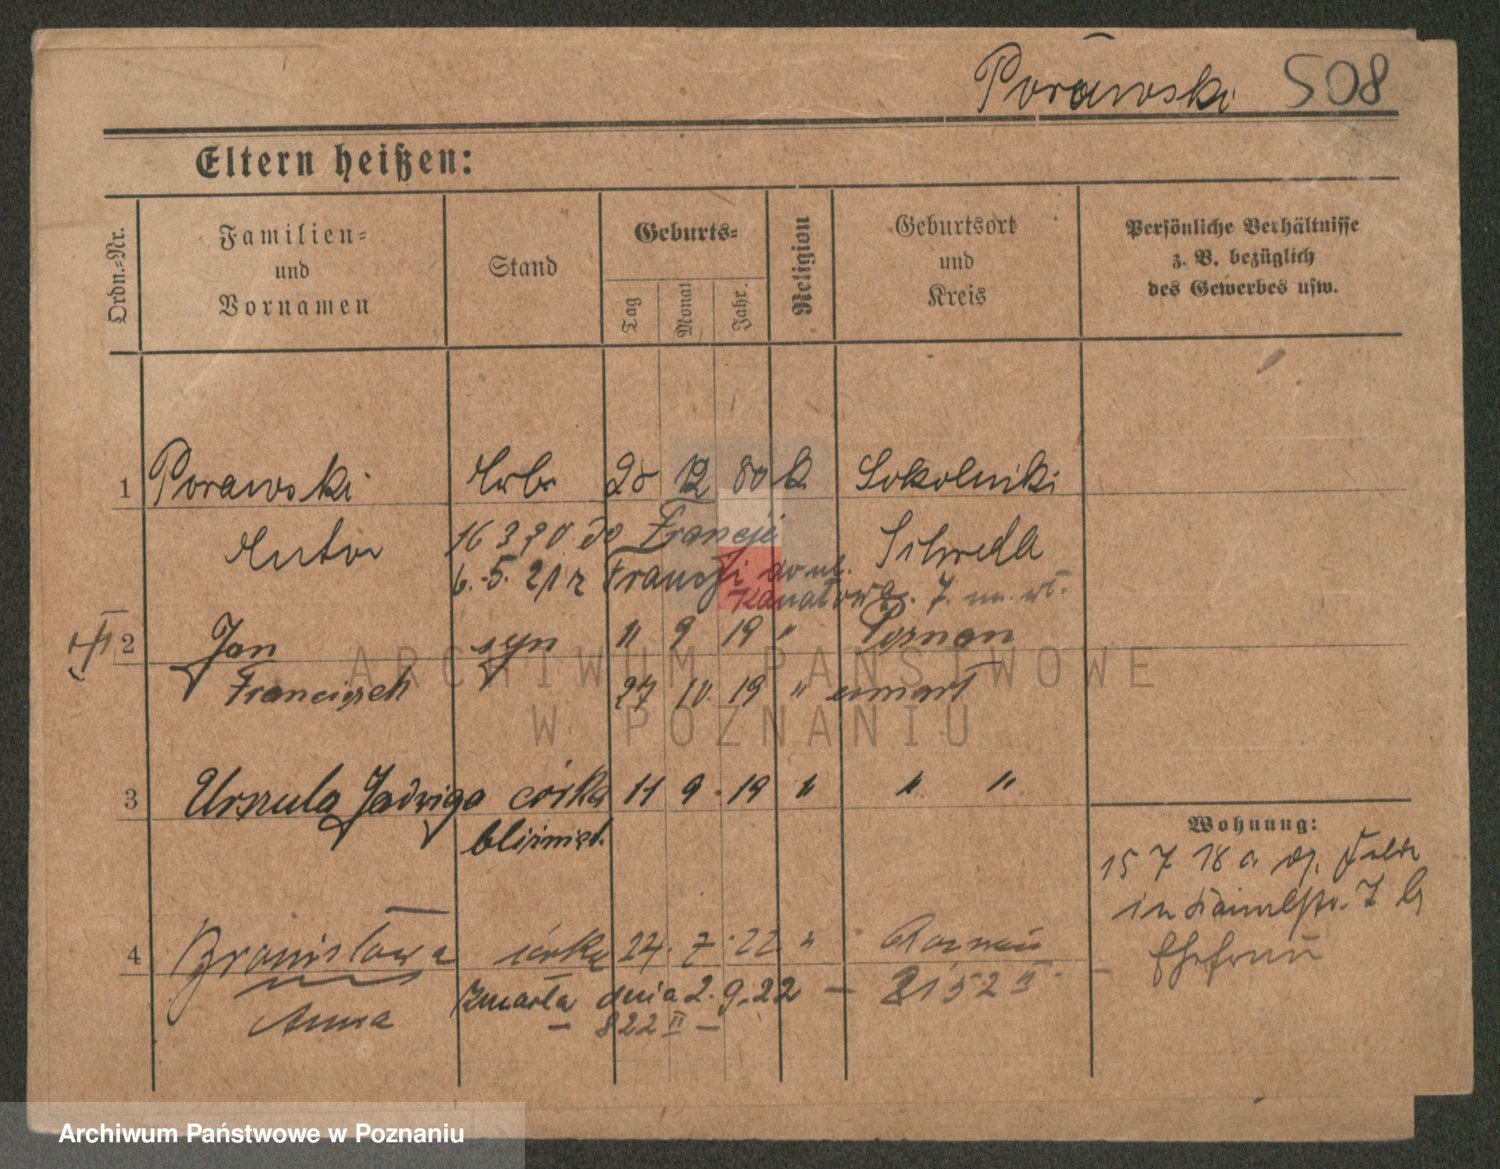 Porawski 508
Eltern heißen:
Ordn.-Nr.
Familien-
und
Vornamen
Stand
Geburts-
Tag
Monat
Jahr.
Religion
Geburtsort
und
Kreis
Persönliche Verhältnisse
z. B. bezüglich
des Gewerbes usw.
1 Porawski Arbr 28 12 80 k. Sokolniki
16 3 20 do Francji
6.5.21 r Francji do ul.
Kanałowa. 7. m. wł.
2 Jan syn 11 9 19 " Poznan
Franciszek 27 10. 19 " umarł
3 Urszula Jadwiga córka 11 9 19 " " "
bliźnięt.
Wohnung:
15 7 18
in 7
Ehefrau
4 Bronisława córka 27. 7. 22 " Poznań
Anna Zmarła dnia 2. 9. 22 — 2152 II. —
— 822 II —
ARCHIWUM PAŃSTWOWE
W POZNANIU
Archiwum Państwowe w Poznaniu